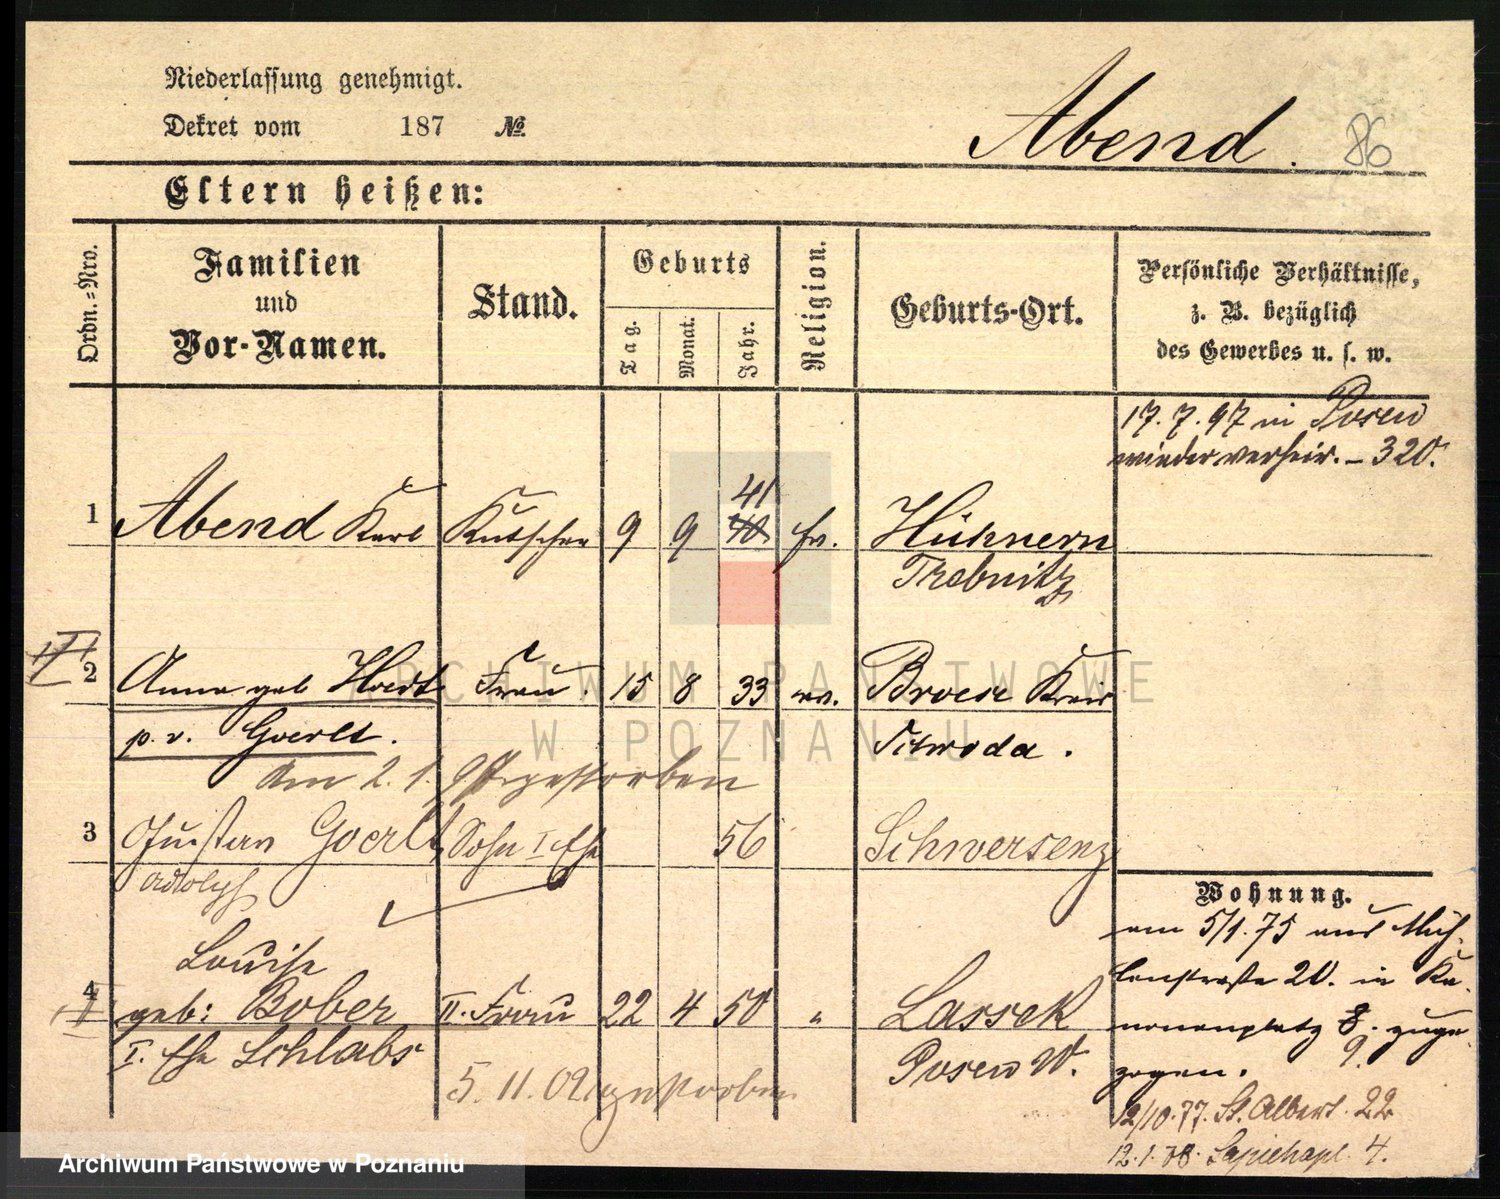 Niederlassung genehmigt.
Dekret vom 187 №
Abend. 86
Eltern heißen:
Ordn.=Nro.
Familien
und
Vor-Namen.
Stand.
Geburts
Tag.
Monat.
Jahr.
Religion.
Geburts-Ort.
Persönliche Verhältnisse,
z. B. bezüglich
des Gewerbes u. s. w.
17. 7. 97 in Posen
wieder verheir. – 320.
1 Abend Karl Kutscher 9 9 40 41 ev. Hühnern
Trebnitz
2 Anna geb Frau. 15 8 33 ev. Kreis
p. v. Goerlt.
am 2. 1. gestorben
3 Gustav Goerlt Sohn I Ehe 56 Schwersenz
Adolph
Louise
4 geb: Bober II. Frau 22 4 50 " Lassek
I. Ehe Schlabs Posen W.
5. 11. 02 gestorben
Wohnung.
am 5/1. 75 aus Müh-
lenstraße 20. in Ka-
nonenplatz 8. zuge-
9.
zogen.
2/10. 77. St. Albert. 22
12. 1. 78. Sapiehapl. 4.
ARCHIWUM PAŃSTWOWE
W POZNANIU
Archiwum Państwowe w Poznaniu